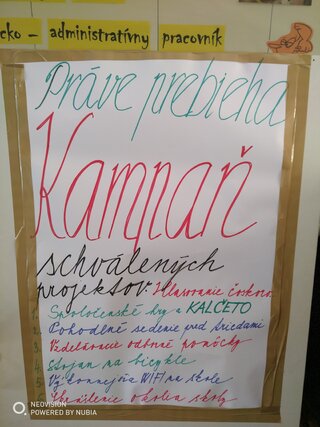 cko - administratívny pracovník
Práve prebieha
Kampaň
schválených
projektov. Hlasovanie čoskoro
1. Spoločenské hry a KALČETO
2. Pohodlné sedenie pred triedami
3. Vzdelávacie odborné pomôcky
4. Stojan na bicykle
5. Výkonnejšia WIFI na škole
okolia školy
NEOVISION
POWERED BY NUBIA